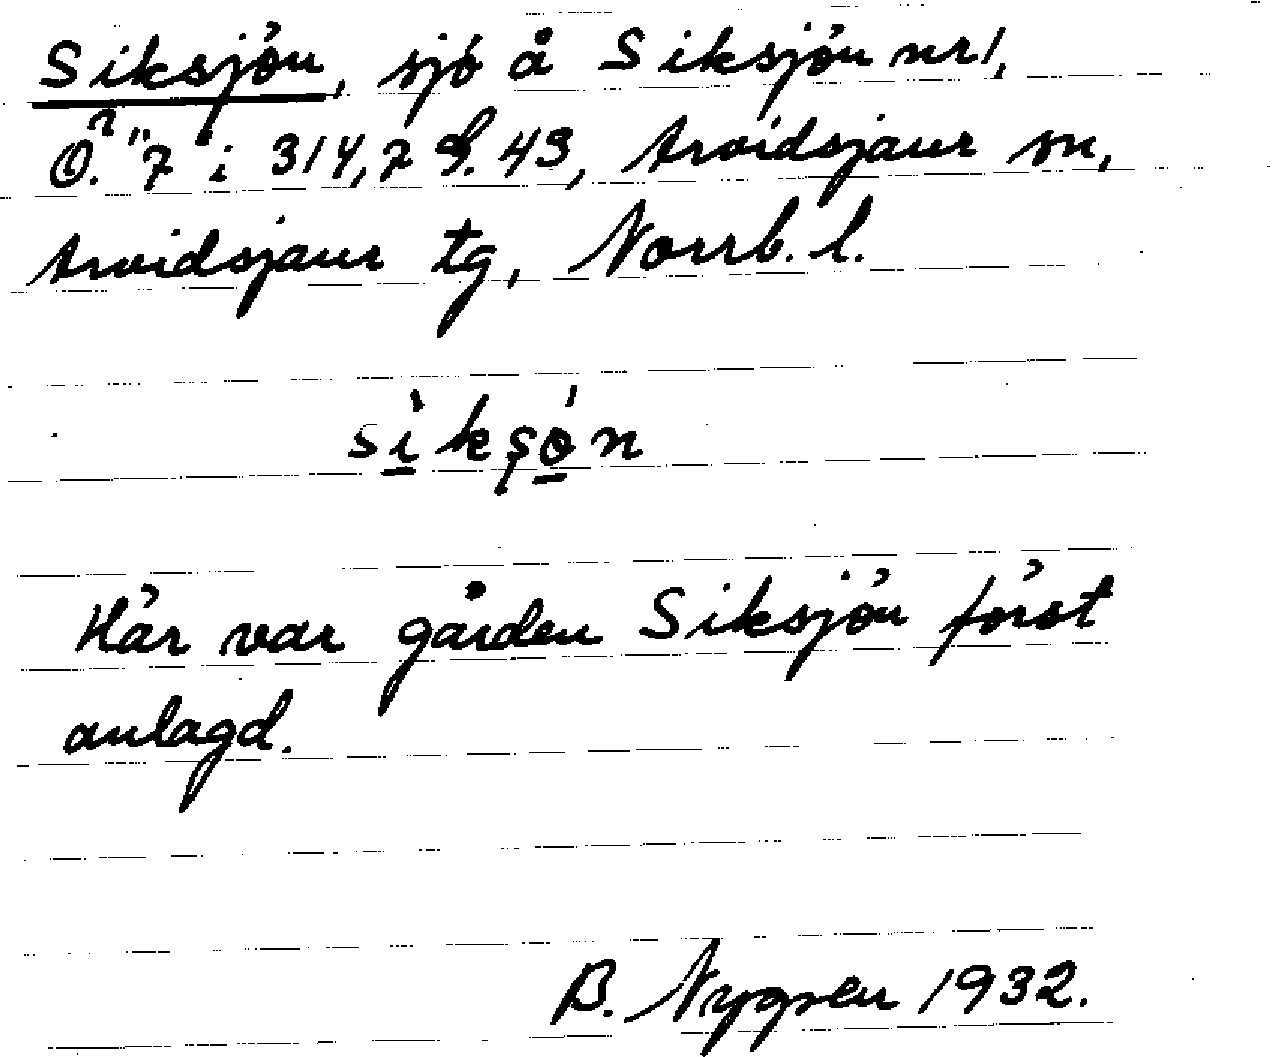 Siksjön, sjö å Siksjön nr 1,
Ö. "7" i 314,7 g. 43, Arvidsjaur sn,
Arvidsjaur tg, Norrb. l.
sìksǿn
Här var gården Siksjön först
anlagd.
B. Nygren 1932.